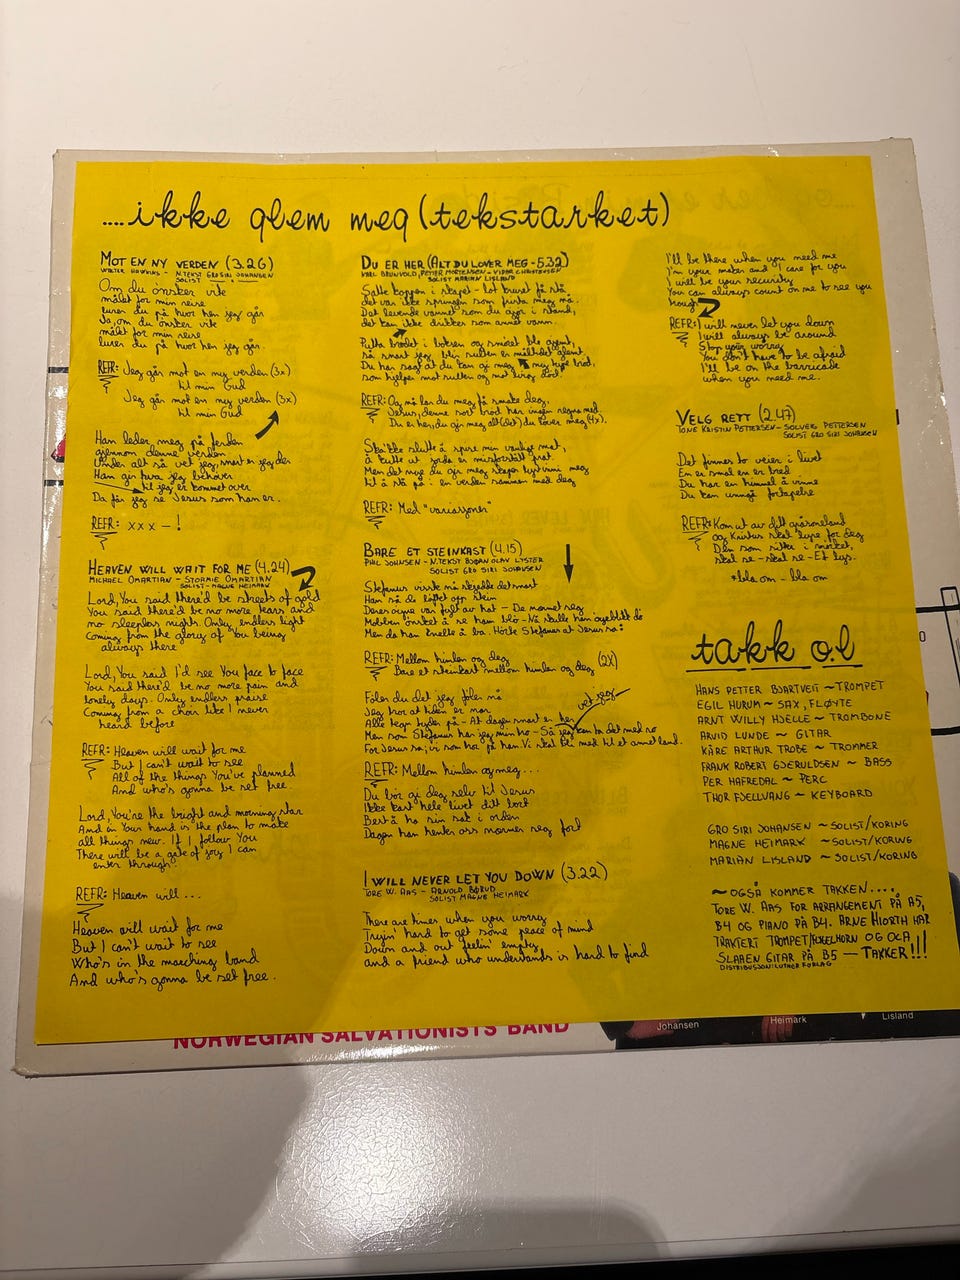 ....ikke glem meg (tekstarket)
MOT EN NY VERDEN (3.26)
WALTER HAWKINS - N.TEKST GRO SIRI JOHANSEN
SOLIST
Om du ønsker vite
målet for min reise
lurer du på hvor hen jeg går
Ja, om du ønsker vite
målet for min reise
lurer du på hvor hen jeg går.
REFR: Jeg går mot en ny verden (3x)
til min Gud
Jeg går mot en ny verden (3x)
til min Gud
Han leder meg på ferden
gjennom denne verden
Under alt så vet jeg, snart er jeg der
Han gir hva jeg behøver
til jeg er kommet over
Da får jeg se Jesus som han er.
REFR: xxx - !
HEAVEN WILL WAIT FOR ME (4.24)
MICHAEL OMARTIAN - STORMIE OMARTIAN
SOLIST - MAGNE HEIMARK
Lord, You said there'd be streets of gold
You said there'd be no more tears and
no sleepless nights. Only endless light
Coming from the glory of You being
always there
Lord, You said I'd see You face to face
You said there'd be no more pain and
lonely days. Only endless praise
Coming from a choir like I never
heard before
REFR: Heaven will wait for me
But I can't wait to see
All of the things You've planned
And who's gonna be set free.
Lord, You're the bright and morning star
And in Your hand is the plan to make
all things new. If I follow You
There will be a gate of joy I can
enter through.
REFR: Heaven will ...
Heaven will wait for me
But I can't wait to see
Who's in the marching band
And who's gonna be set free.
DU ER HER (ALT DU LOVER MEG - 5.32)
KARL BRUNVOLD, PETTER MORTENSEN - VIDAR CHRISTENSEN
SOLIST MARIAN LISLAND
Satte koppen i skapet - lot bruset få stå
det var ikke springen som frista meg nå.
Det levende vannet som du gjør i stand,
det kan ikke drikkes som annet vann.
Putta brødet i boksen og smøret ble glemt,
så snart jeg blir sulten er måltidet glemt
Du har sagt at du kan gi meg ny type brød,
som hjelper mot sulten og mot livløs død.
REFR: Og nå lar du meg få smake deg,
Jesus, denne sort brød har ingen regna med.
Du er her, du gir meg alt (det) du lover meg (4x).
Skal ikke slutte å spise min vanlige mat,
å kutte ut jorda er misforstått prat
Men det nye du gir meg skaper lyst inni meg
til å stå på i en verden sammen med deg
REFR: Med "variasjoner"
BARE ET STEINKAST (4.15)
PHIL JOHNSEN - N.TEKST BJØRN OLAV LYSTER
SOLIST GRO SIRI JOHANSEN
Stefanus visste nå skjedde det snart
Han så de løftet opp stein
Deres øyne var fylt av hat - De nærmet seg
Mobben ønsket å se han blø - Nå skulle han øyeblikk dø
Men da han knelte å ba. Hørte Stefanus at Jesus sa:
REFR: Mellom himlen og deg
Bare et steinkast mellom himlen og deg (2x)
Føler du det jeg føler nå
Jeg tror at tiden er nær
Alle tegn tyder på - At dagen snart er her
vet jeg
Men som Stefanus har jeg min tro - Så jeg kan ta det med ro
For Jesus sa; vi som tror på han. Vi skal bli med til et annet land.
REFR: Mellom himlen og meg...
Du bør gi deg selv til Jesus
Ikke kast hele livet ditt bort
Best å ha sin sak i orden
Dagen han henter oss nærmer seg fort
I WILL NEVER LET YOU DOWN (3.22)
TORE W. AAS - ARNOLD BØRUD
SOLIST MAGNE HEIMARK
There are times when you worry
Tryin' hard to get some peace of mind
Down and out feelin' empty
and a friend who understands is hard to find
I'll be there when you need me
I'm your maker and I care for you
I will be your security
You can always count on me to see you
through
REFR: I will never let you down
I will always be around
Stop your worry
You don't have to be afraid
I'll be on the barricade
when you need me.
VELG RETT (2.47)
TONE KRISTIN PETTERSEN - SOLVEIG PETTERSEN
SOLIST GRO SIRI JOHANSEN
Det finnes to veier i livet
En er smal en er bred
Du har en himmel å vinne
Du kan unngå fortapelse
REFR: Kom ut av ditt gråsoneland
og Kristus skal lyse for deg
Den som sitter i mørket,
skal se - skal se - Et lys.
*bla om - bla om
takk o.l
HANS PETTER BJARTVEIT ~ TROMPET
EGIL HURUM ~ SAX, FLØYTE
ARNT WILLY HJELLE ~ TROMBONE
ARVID LUNDE ~ GITAR
KÅRE ARTHUR TROBE ~ TROMMER
FRANK ROBERT GJERULDSEN ~ BASS
PER HAFREDAL ~ PERC
THOR FJELLVANG ~ KEYBOARD
GRO SIRI JOHANSEN ~ SOLIST/KORING
MAGNE HEIMARK ~ SOLIST/KORING
MARIAN LISLAND ~ SOLIST/KORING
~ OGSÅ KOMMER TAKKEN....
TORE W. AAS FOR ARRANGEMENT PÅ A5,
B4 OG PIANO PÅ B4. ARNE HIORTH HAR
TRAKTERT TROMPET/FLYGELHORN OG OLA
GITAR PÅ B5 — TAKKER!!!
DISTRIBUSJON: LUTHER FORLAG
NORWEGIAN SALVATIONISTS BAND
Johansen
Heimark
Lisland